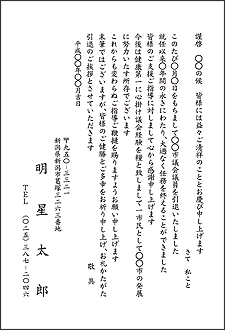 謹啓　〇〇の候　皆様には益々ご清祥のこととお慶び申し上げます
さて　私こと
このたび〇月〇日をもちまして〇〇市議会議員を引退いたしました
就任以来〇年間の永きにわたり、大過なく任務を終えることができました
皆様のご支援ご指導に対しまして心から感謝申し上げます
今後は健康第一に心掛け議会経験を糧と致しまして、一市民として〇〇市の発展
に努力いたす所存でございます
これからも変わらぬご指導ご鞭撻を賜りますようお願い申し上げます
末筆ではございますが、皆様のご健勝とご多幸をお祈り申し上げ、お礼かたがた
引退のご挨拶とさせていただきます
敬具
平成〇〇年〇〇月吉日
〒九五〇-三三二一
新潟県新潟市葛塚三二六三番地
明星太郎
TEL（〇二五）三八七-二〇四六